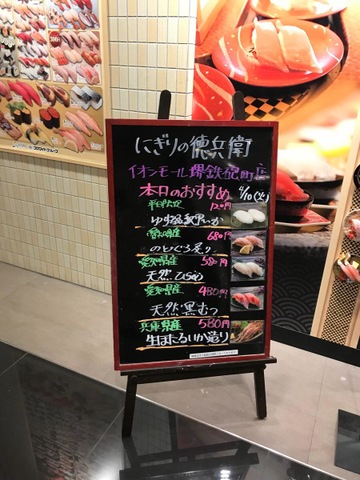 にぎりの徳兵衛
イオンモール堺鉄砲町店
本日のおすすめ 4/10(火)
平日限定 120円
ゆず塩甲いか
愛知県産 680円
のどぐろ炙り
愛知県産 580円
天然ひらめ
愛知県産 480円
天然黒むつ
兵庫県産 580円
生ほたるいか造り